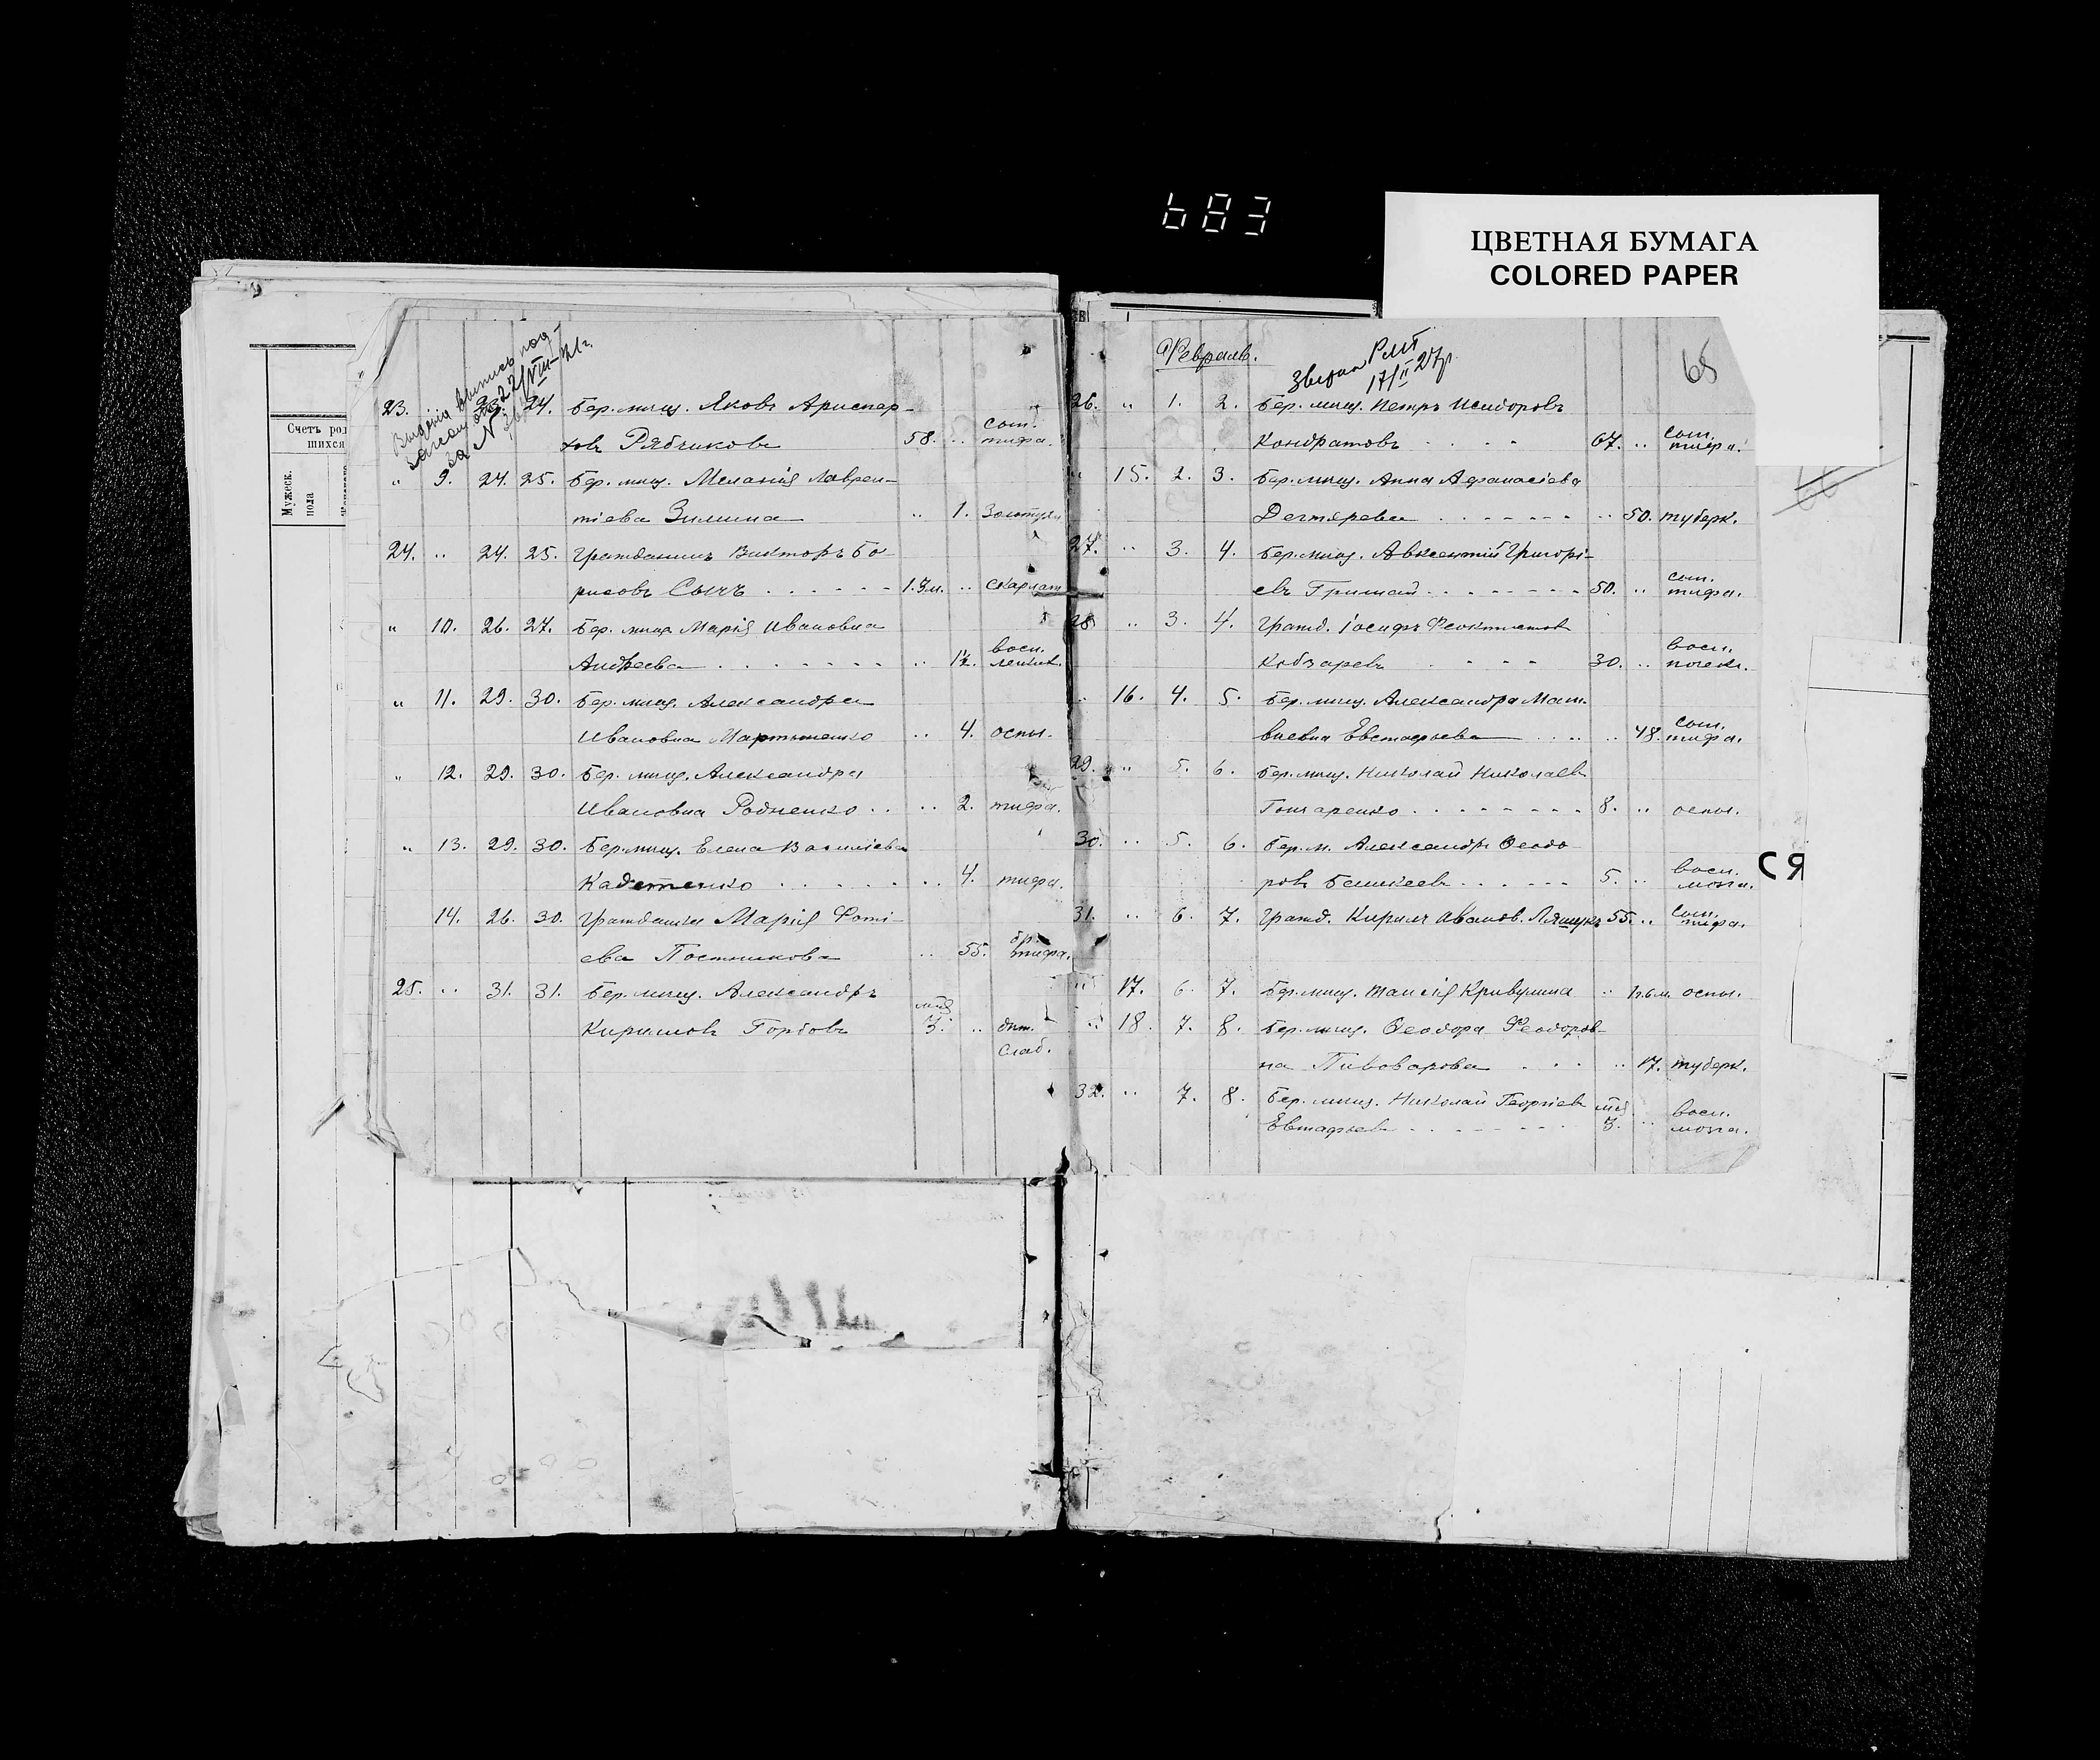 683
ЦВЕТНАЯ БУМАГА
COLORED PAPER
Счетъ
Мужеск. пола
22/VIII-21г.
за №
23. 23. 24. Бер. мѣщ. Яковъ Ариспар-
ховъ Рябчиковъ 58. .. сып. тифа.
" 9. 24. 25. Бер. мѣщ. Меланія Лаврен-
тіева Зимина .. 1.
24. .. 24. 25. Гражданинъ Викторъ Бо-
рисовъ Сычъ . . . . . . 1.3м. .. скарлат
" 10. 26. 27. Бер. мѣщ. Марія Ивановна
Андреева . . . . . . . .. 1½. восп. легких.
" 11. 29. 30. Бер. мѣщ. Александра
Ивановна Мартыненко .. 4. оспы.
" 12. 29. 30. Бер. мѣщ. Александра
Ивановна Родненко .. .. 2. тифа.
" 13. 29. 30. Бер. мѣщ. Елена Василіева
Кадетенко . . . . . . .. 4. тифа.
14. 26. 30. Гражданка Марія Фоті-
ева Постникова .. 55. бр. тифа.
25. .. 31. 31. Бер. мѣщ. Александръ
Кириловъ Горбовъ 3. .. слаб.
Февраль.
17/II 27г
65
26. " 1. 2. Бер. мѣщ. Петръ Исидоровъ
Кондратовъ . . . . 67. .. сып. тифа.
" 15. 2. 3. Бер. мѣщ. Анна Афанасіева
Дегтярева . . . . . . .. 50. туберк.
27. .. 3. 4. Бер. мѣщ. Авксентій Григорі-
евъ Гришай . . . . . . . . 50. .. сып. тифа.
28. .. 3. 4. Гражд. Іосифъ Феоктистовъ
Кобзаревъ . . . . 30. .. восп. почекъ.
.. 16. 4. 5. Бер. мѣщ. Александра Мат-
вѣевна Евстафьева . . .. 48. сып. тифа.
29. " 5. 6. Бер. мѣщ. Николай Николаевъ
Гончаренко . . . . . . . . 8. .. оспы.
30. .. 5. 6. Бер. м. Александръ Ѳеодо-
ровъ . . . . . . 5. .. восп. мозга.
31. .. 6. 7. Гражд. Кирилъ Иванов. Ляшукъ 55. .. сып. тифа.
" 17. 6. 7. Бер. мѣщ. Таисія Кривулина .. 1г.6м. оспы.
.. 18. 7. 8. Бер. мѣщ. Ѳеодора Феодоров-
на Пивоварова . . . .. 17. туберк.
32. .. 7. 8. Бер. мѣщ. Николай Георгіевъ
Евстафьевъ . . . . . . . . 3. .. восп. мозга.
СЯ